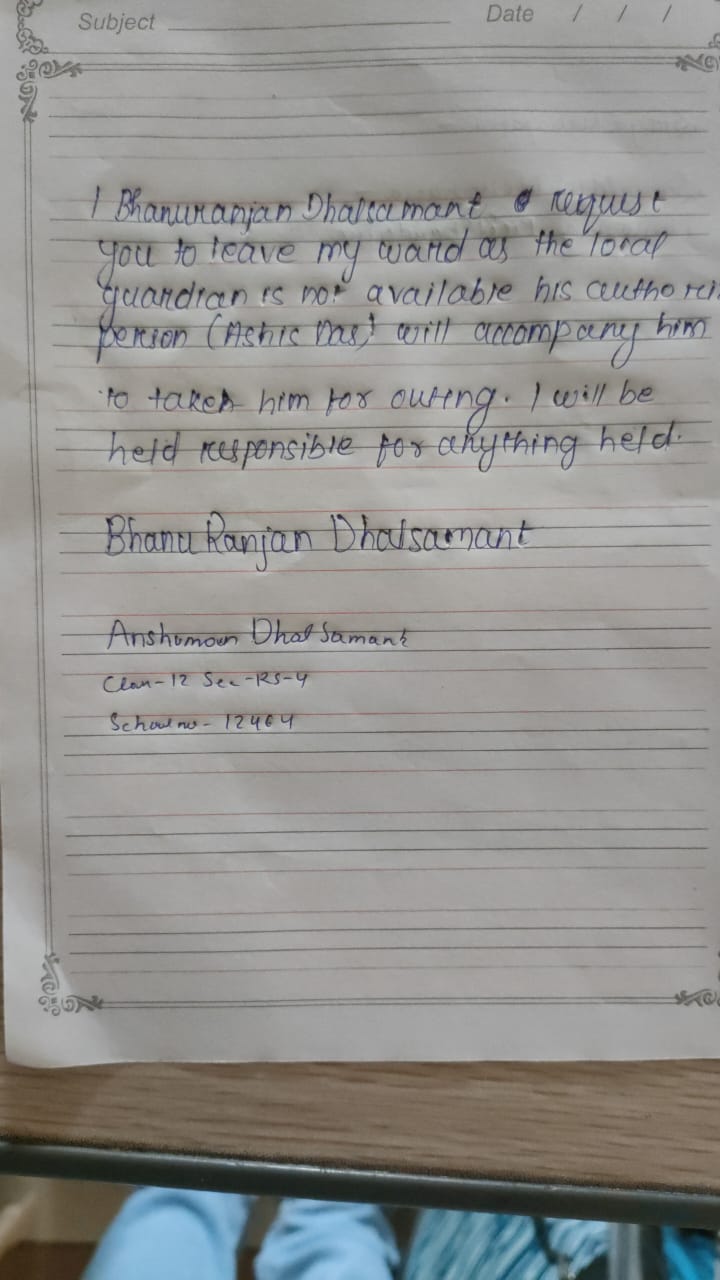 Subject
Date / / /
I Bhanuranjan Dhalsamant request
you to leave my ward as the local
guardian is not available his authori
person (Ashis Das) will accompany him
to taken him for outing. I will be
held responsible for anything held.
Bhanu Ranjan Dhalsamant
Anshuman Dhal Samant
Class-12 Sec-RS-4
School no - 12464